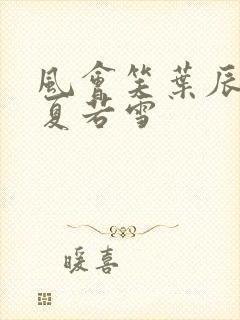 風會笑葉辰
夏若雪
暖喜